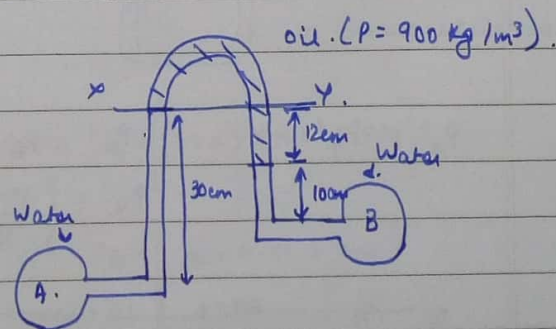 oil. (P = 900 kg/m³).
X
Y.
12cm
Water
30cm
10cm
B
Water
A.